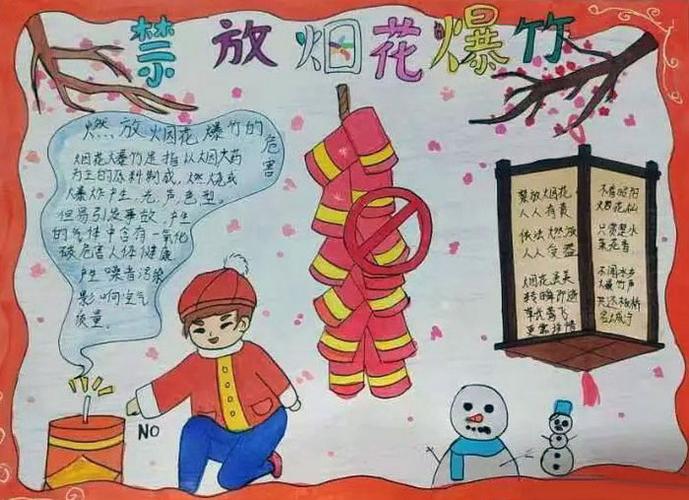 禁放烟花爆竹
燃放烟花爆竹的危害
烟花爆竹是指以烟火药
为主的原料制成，燃烧或
爆炸产生，光，声，色，型。
但易引发事故，产生
的气体中含有一氧化
碳危害人体健康
产生噪音污染
影响空气
质量。
NO
禁放烟花
人人有责
依法燃放
人人受益
烟花虽美
转瞬即逝
草长莺飞
更需珍惜
不看昭阳
烟花仙
只赏垂水
菜花香
不闻水乡
爆竹声
共还板桥